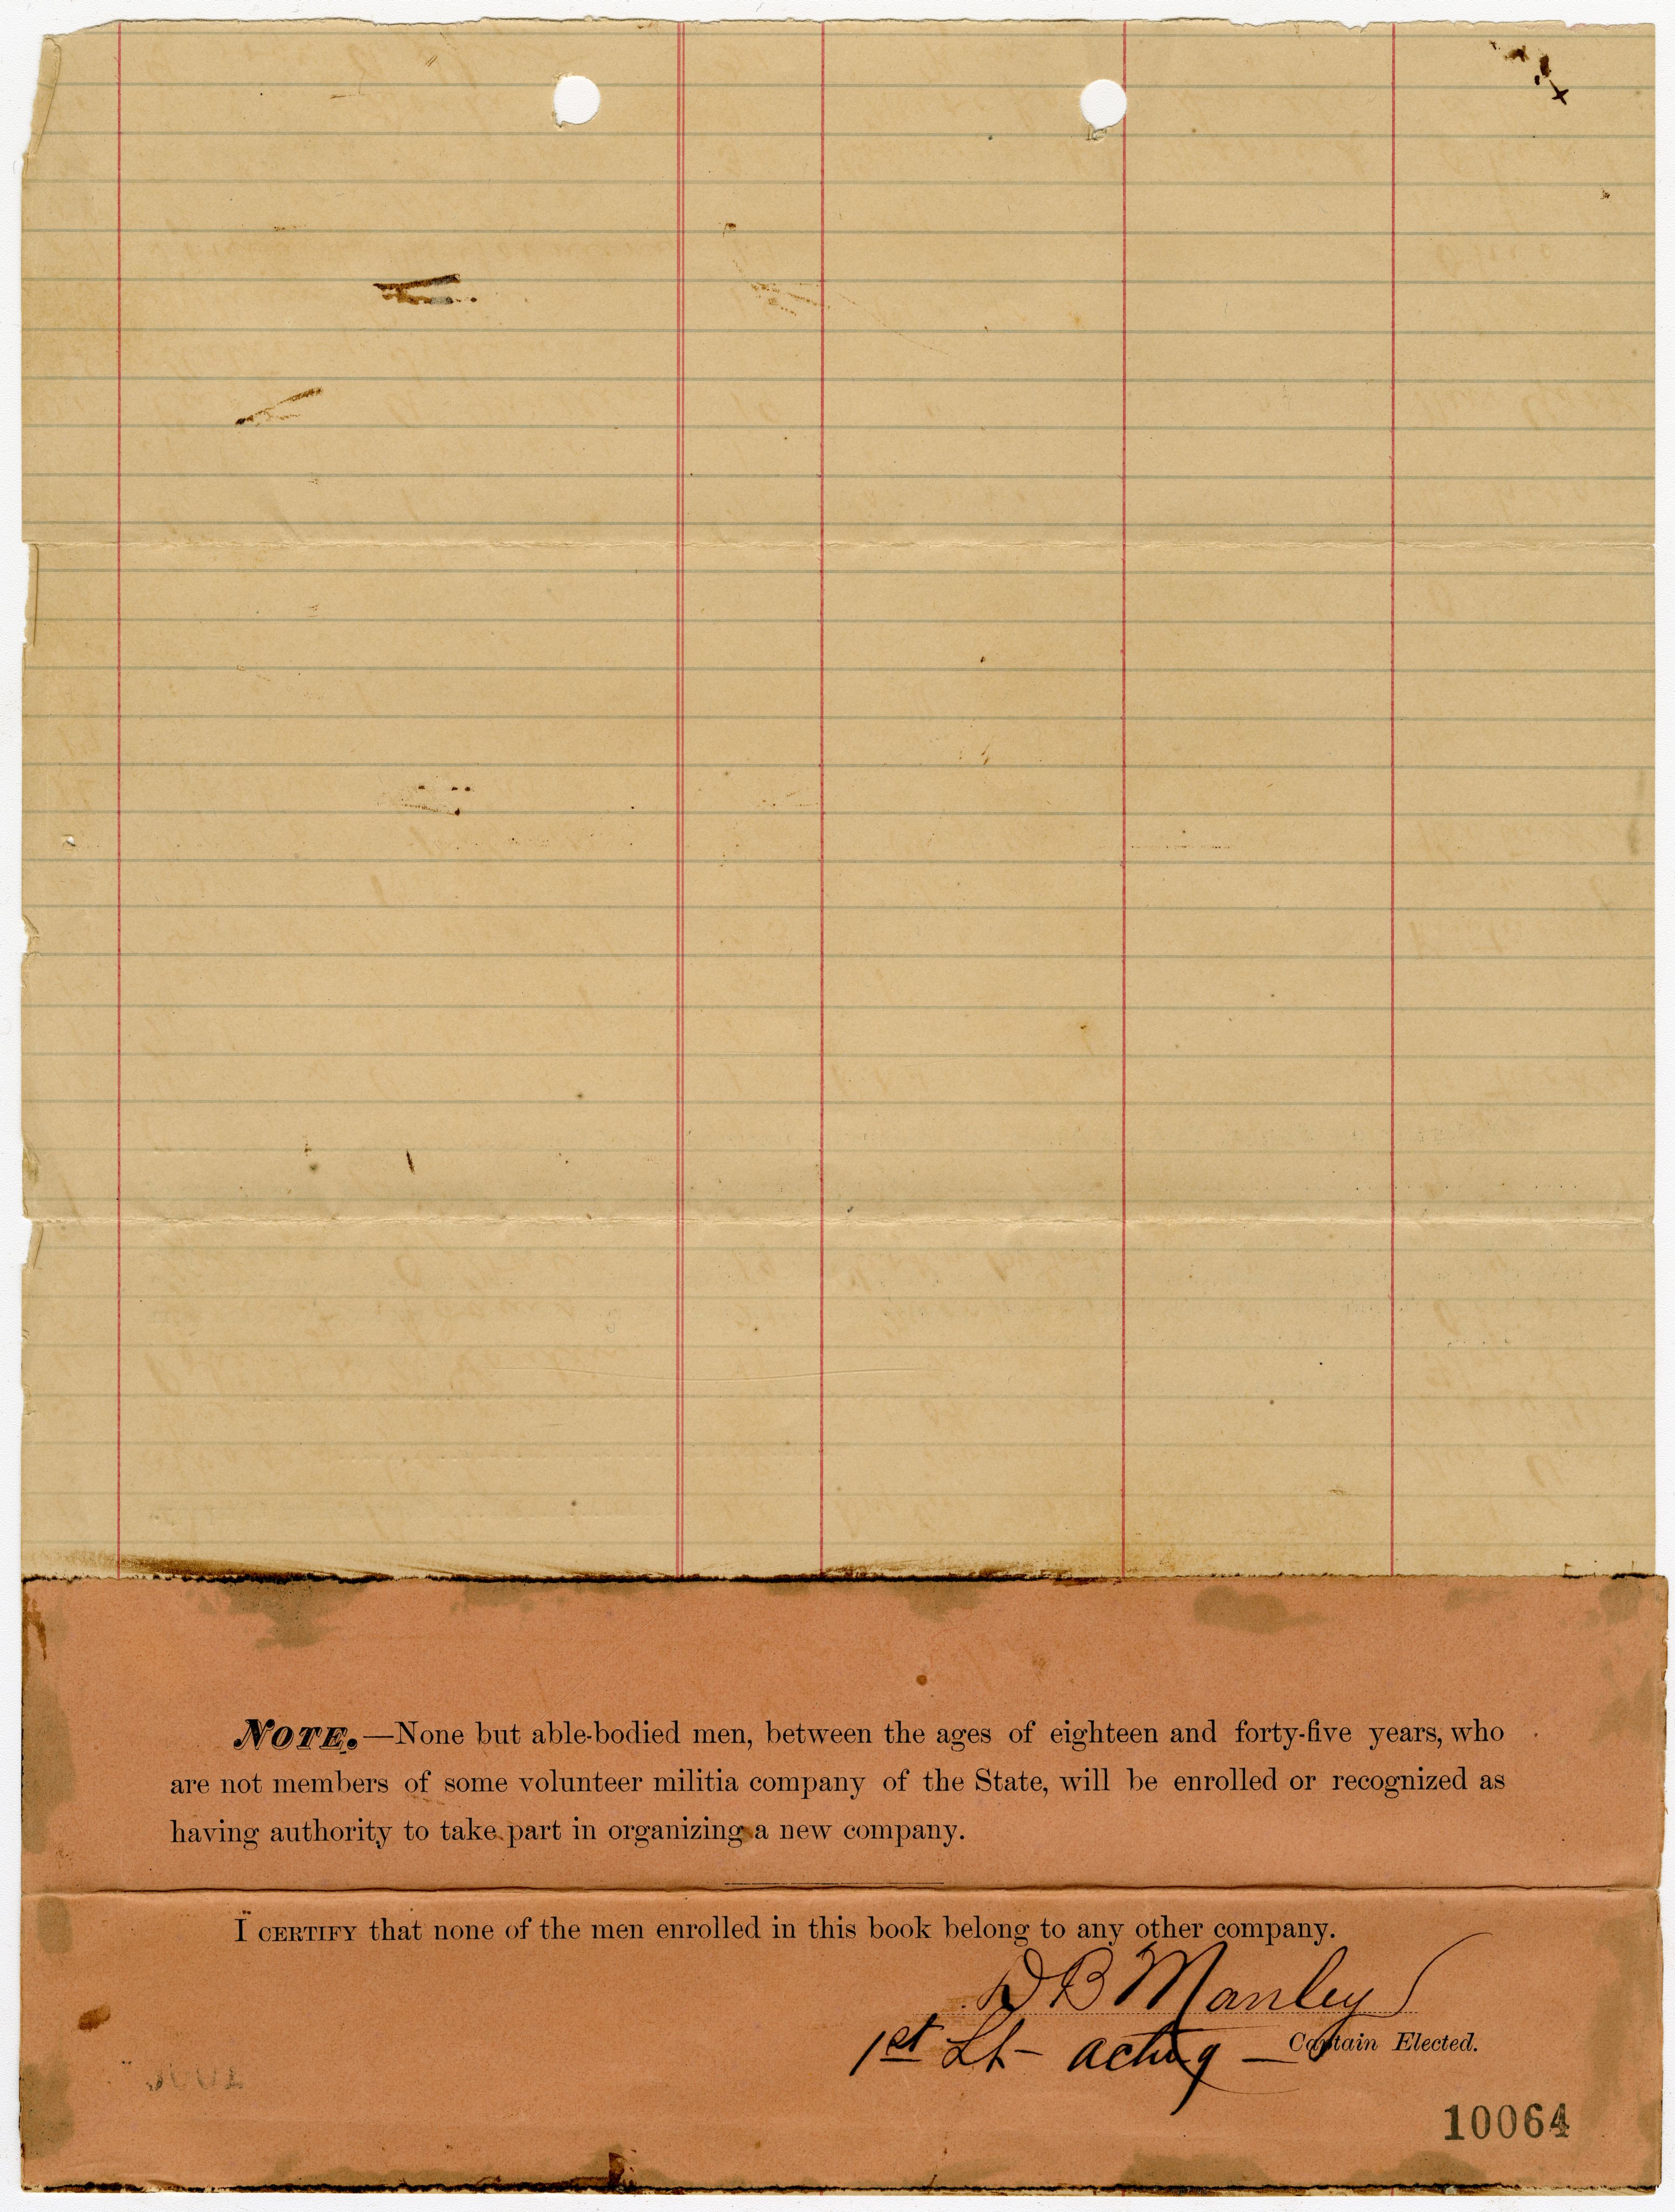 NOTE.—None but able-bodied men, between the ages of eighteen and forty-five years, who
are not members of some volunteer militia company of the State, will be enrolled or recognized as
having authority to take part in organizing a new company.
I CERTIFY that none of the men enrolled in this book belong to any other company.
D B Manley
1st Lt - acting - Captain Elected.
10064